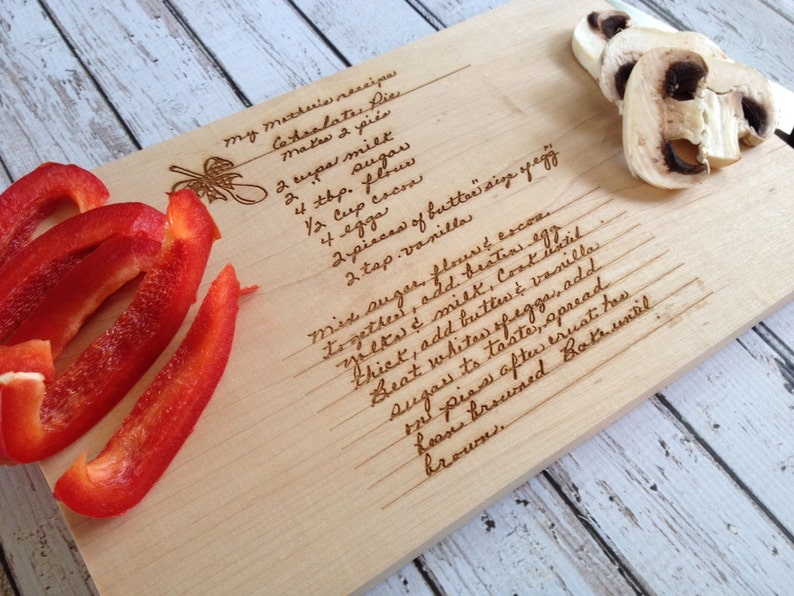 My Mother's recipe
Chocolate Pie
Makes 2 pies
2 cups milk
2 " sugar
4 tbp. flour
1/2 cup cocoa
4 eggs
2 pieces of butter "size of egg"
2 tsp. vanilla
Mix sugar, flour & cocoa
together, add beaten egg
yolks & milk, Cook until
thick, add butter & vanilla
Beat white of eggs, add
sugar to taste, spread
on pies after crust has
been browned Bake until
brown.